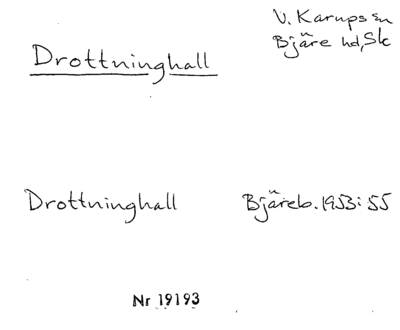 Drottninghall
V. Karups sn
Bjäre hd, Sk
Drottninghall
Bjäreb. 1953:55
Nr 19193